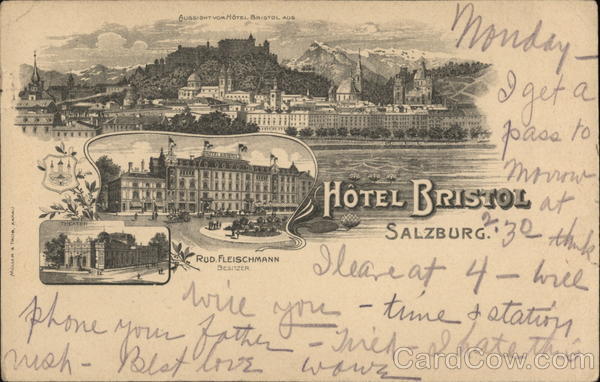 AUSSICHT VOM HÔTEL BRISTOL AUS
Monday —
I get a
pass to
morrow
at
2.30 think
HÔTEL BRISTOL
SALZBURG.
THEATER
MÜLLER & TRÜB, AARAU
RUD. FLEISCHMANN
BESITZER
I leave at 4 — will
wire you — time & station
phone your father —
I hate this
rush — Best love
CardCow.com